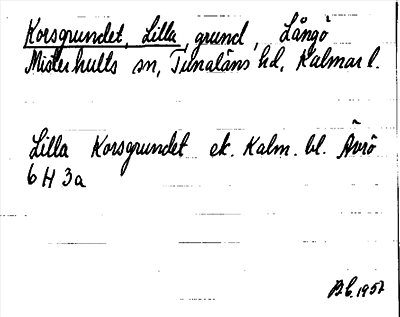 Korsgrundet, Lilla, grund, Långö
Misterhults sn, Tunaläns hd, Kalmar l.
Lilla Korsgrundet ek. Kalm. bl. Ävrö
6 H 3a
1957